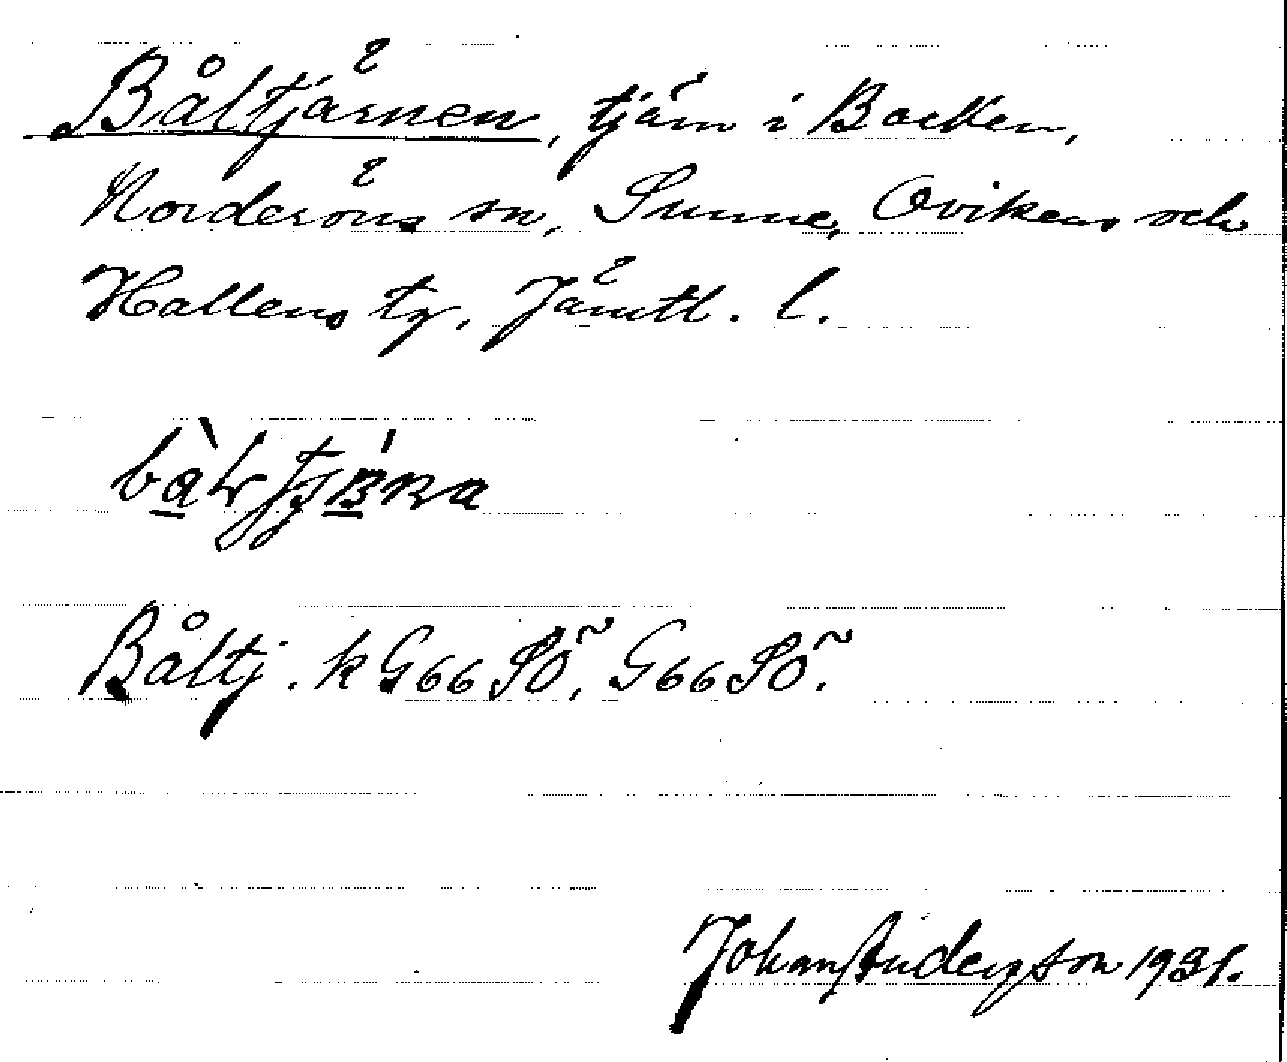 Båltjärnen, tjärn i Backen,
Norderöns sn, Sunne, Ovikens och
Hallens tg, Jämtl. l.
Båltj. k G66 SÖ, G66 SÖ.
Johan Anderson 1931.